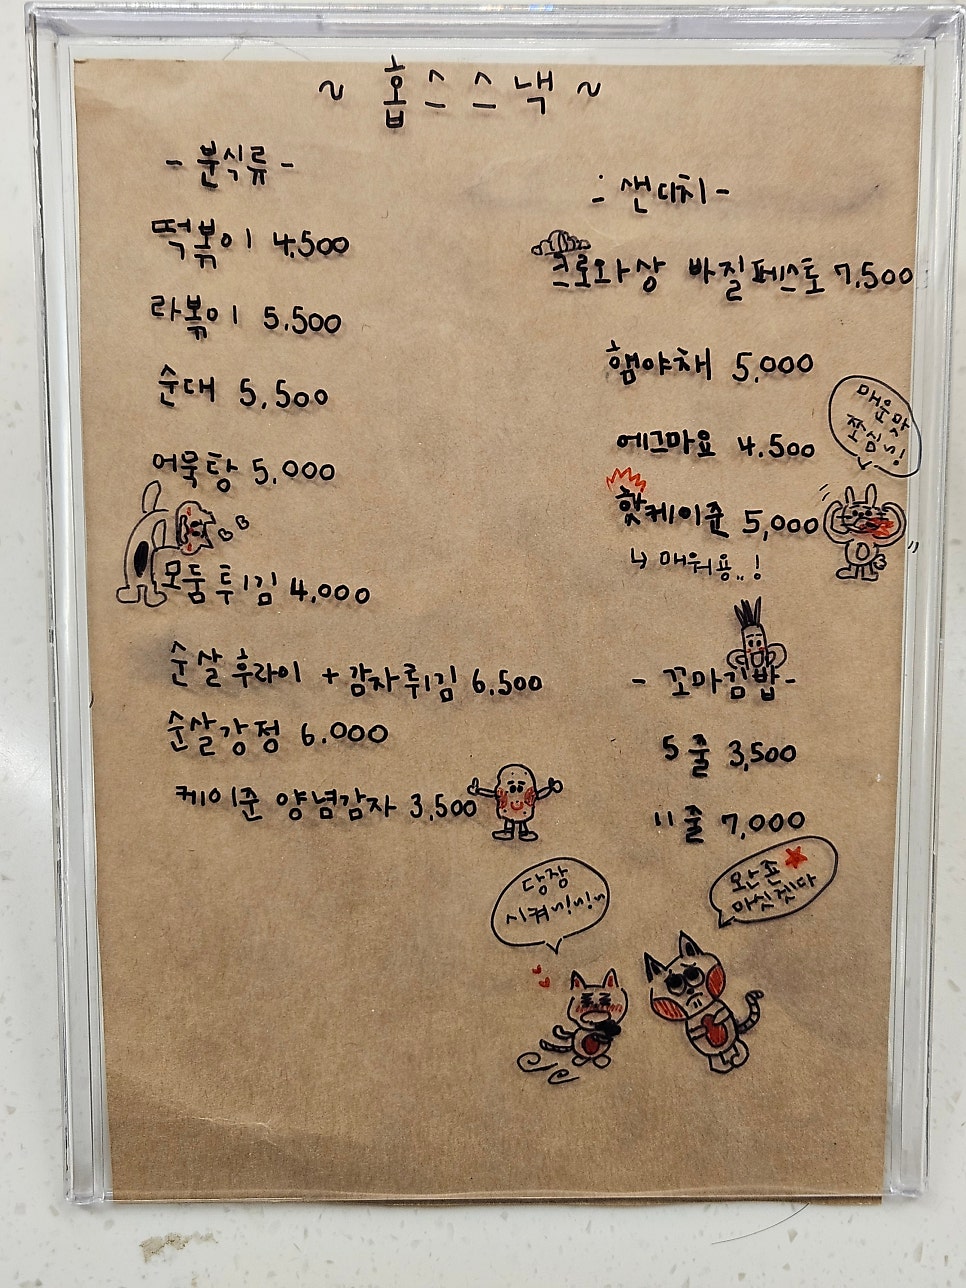 ~ 홉스스낵 ~
- 분식류 -
떡볶이 4,500
라볶이 5,500
순대 5,500
어묵탕 5,000
모둠튀김 4,000
순살후라이 + 감자튀김 6,500
순살강정 6,000
케이준 양념감자 3,500
- 샌디치 -
크로와상 바질페스토 7,500
햄야채 5,000
에그마요 4,500
핫케이준 5,000
↳ 매워용..!
매운맛
조심~!
- 꼬마김밥 -
5줄 3,500
11줄 7,000
당장
시켜~!~!~
완존
마싯겟다